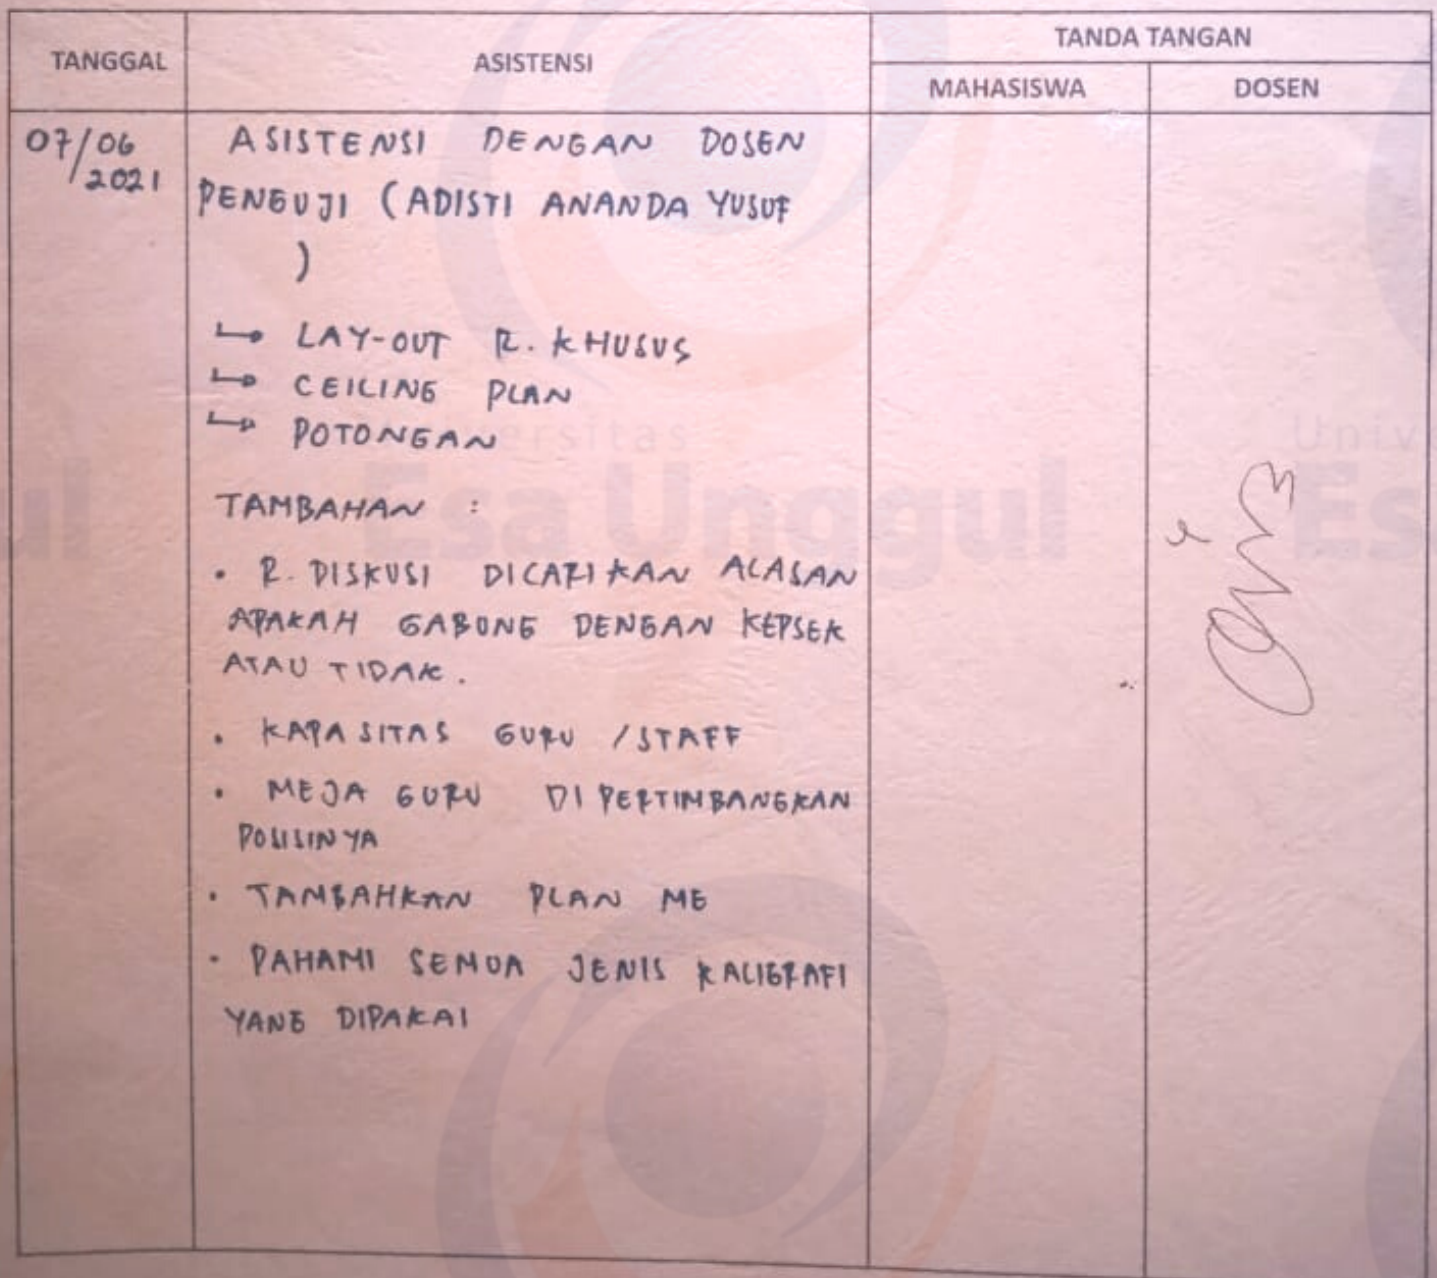 TANGGAL
ASISTENSI
TANDA TANGAN
MAHASISWA
DOSEN
07/06
2021
ASISTENSI DENGAN DOSEN
PENGUJI (ADISTI ANANDA YUSUF
)
LAY-OUT R. KHUSUS
CEILING PLAN
POTONGAN
TAMBAHAN :
• R. DISKUSI DICARIKAN ALASAN
APAKAH GABUNG DENGAN KEPSEK
ATAU TIDAK.
• KAPASITAS GURU / STAFF
• MEJA GURU DIPERTIMBANGKAN
POSISINYA
• TAMBAHKAN PLAN ME
• PAHAMI SEMUA JENIS KALIGRAFI
YANG DIPAKAI
Universitas
Esa Unggul
ul
Univ
Es